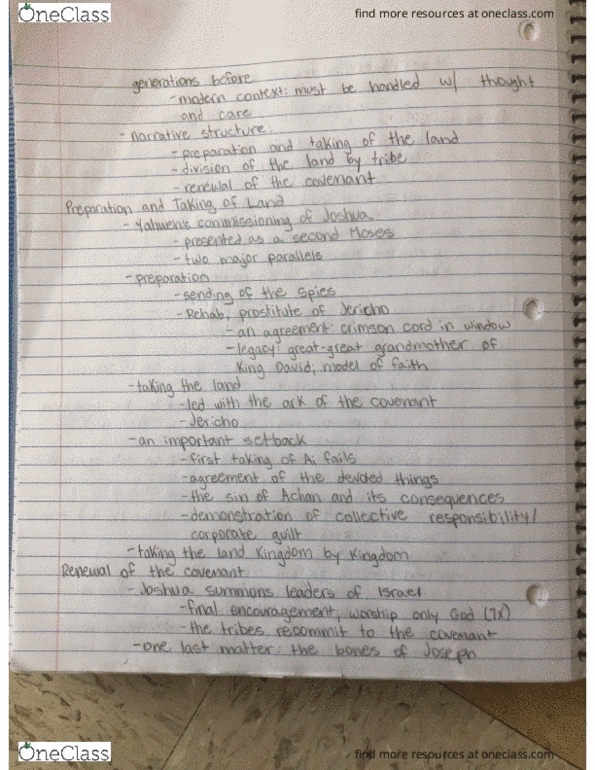 OneClass
find more resources at oneclass.com
generations before
- modern context: must be handled w/ thought
and care
- narrative structure:
- preparation and taking of the land
- division of the land by tribe
- renewal of the covenant
Preparation and Taking of Land
- Yahweh's commissioning of Joshua
- presented as a second Moses
- two major parallels
- preparation
- sending of the spies
- Rehab, prostitute of Jericho
- an agreement: crimson cord in window
- legacy: great-great grandmother of
King David; model of faith
- taking the land
- led with the ark of the covenant
- Jericho
- an important setback
- first taking of Ai fails
- agreement of the devoted things
- the sin of Achan and its consequences
- demonstration of collective responsibility/
corporate guilt
- taking the land Kingdom by Kingdom
Renewal of the covenant
- Joshua summons leaders of Israel
- final encouragement; worship only God (7x)
- the tribes recommit to the covenant
- one last matter: the bones of Joseph
OneClass
find more resources at oneclass.com